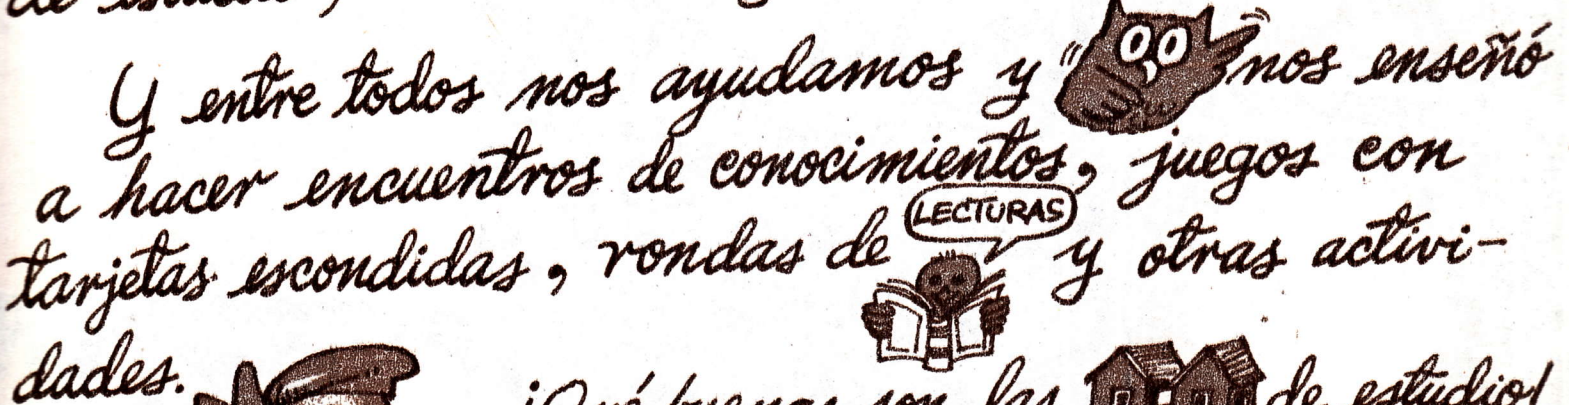 Y entre todos nos ayudamos y nos enseñó
a hacer encuentros de conocimientos, juegos con
tarjetas escondidas, rondas de LECTURAS y otras activi-
dades.
¡Qué buenas son las de estudio!